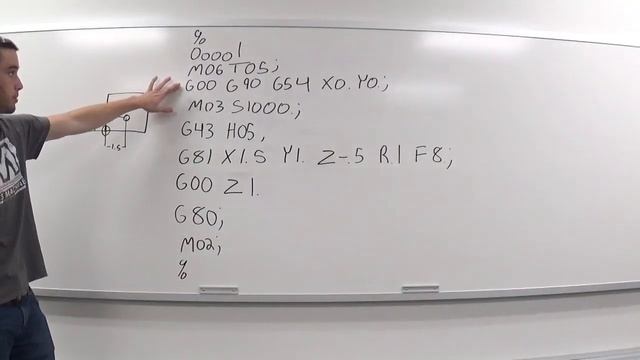 %
O0001
M06 T05;
G00 G90 G54 X0. Y0.;
M03 S1000.;
G43 H05,
G81 X1.5 Y1. Z-.5 R.1 F8;
G00 Z1.
G80;
M02;
%
1.5